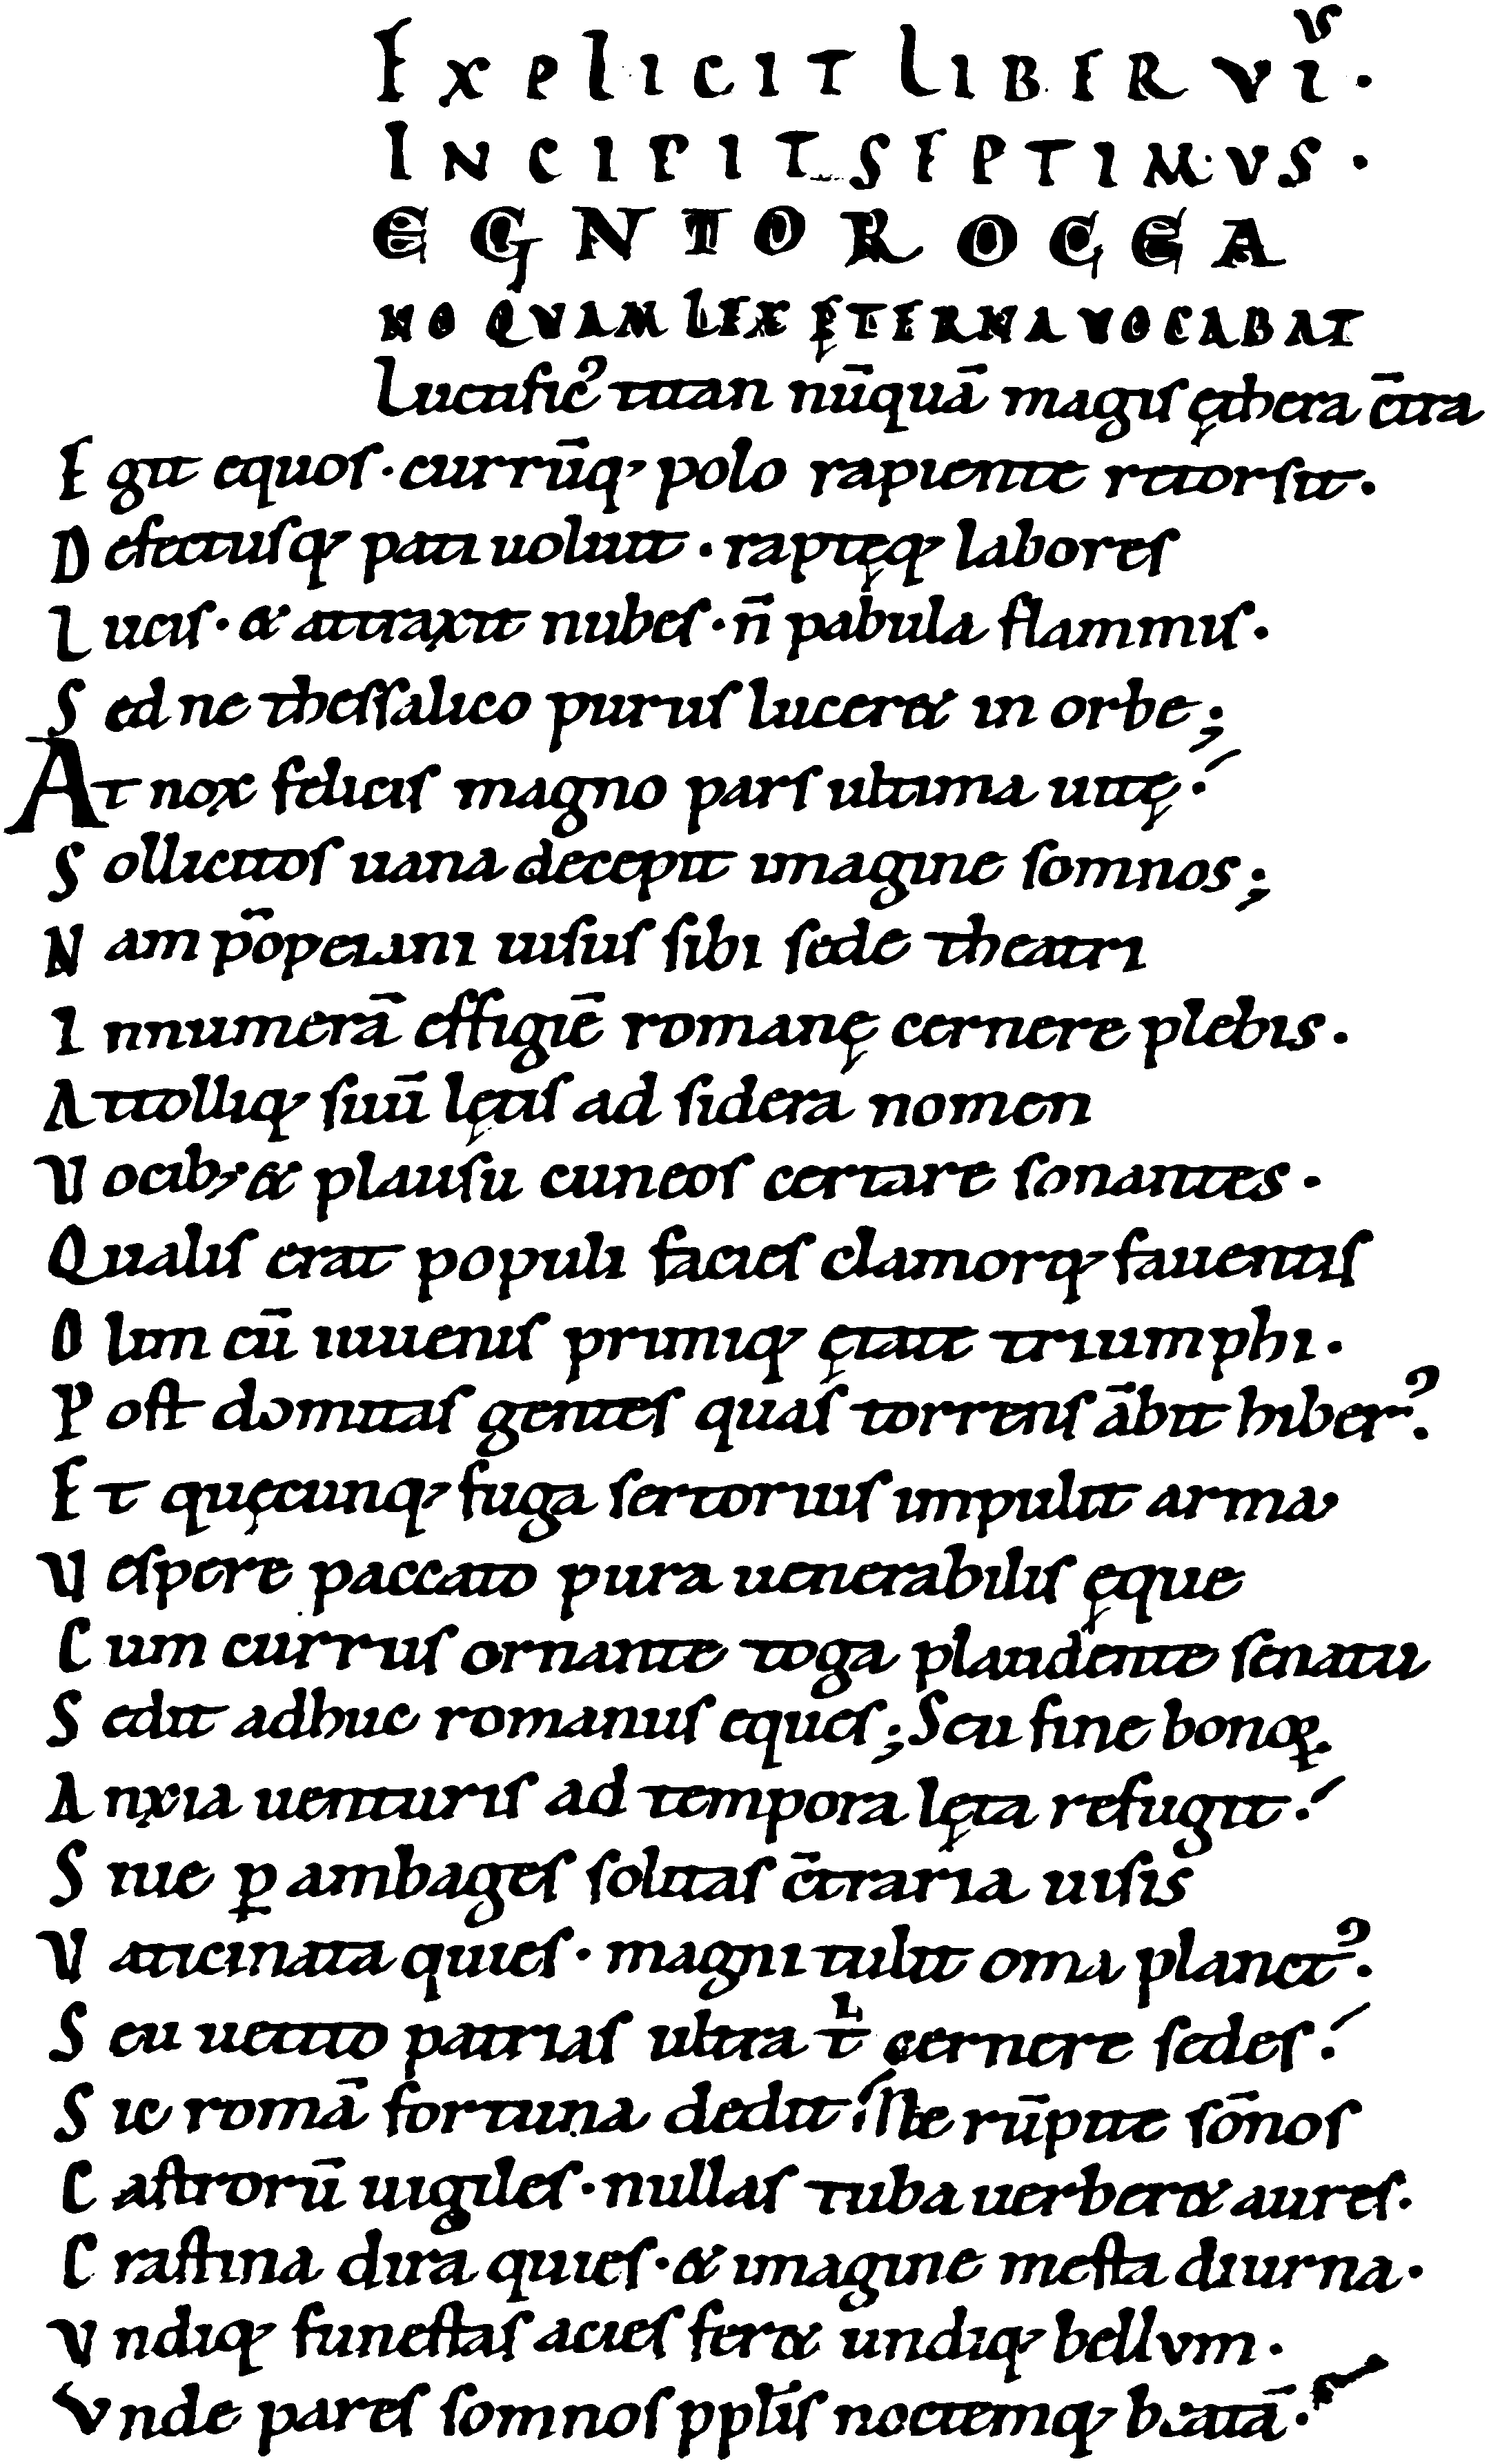 EXPLICIT LIBER VI͛·
INCIPIT SEPTIMVS·
EGNIOR OCEA
NO QVAM LEX ĘTERNA VOCABAT
Luctific᾿ titan nūquā magis ęthera c̄tra
Egit equos· currūq; polo rapiente retorsit·
Defectusq; pati uoluit· raptęq; labores
Lucis· & attraxit nubes· n̄ pabula flammis·
Sed ne thessalico purus lucer& in orbe;
At nox felicis magno pars ultima uitę·
Sollicitos uana decepit imagine somnos;
Nam pōpeiani uisus sibi sede theatri
Innumerā effigiē romanę cernere plebis·
Attolliq; suū lętis ad sidera nomen
Vocib; & plausu cuneos certare sonantes·
Qualis erat populi facies clamorq; fauentis
Olim cū iuuenis primiq; ętate triumphi·
Post domitas gentes quas torrens ābit hiber᾿·
Et quęcunq; fuga sertorius impulit arma
Vespere paccato pura uenerabilis ęque
Cum currus ornante toga plaudente senatu
Sedit adhuc romanus eques; Seu fine bonoꝝ
Anxia uenturis ad tempora lęta refugit·
Siue ꝑ ambages solitas c̄traria uisis
Vaticinata quies· magni tulit oma planct᾿·
Seu uetito patrias ultra t̄ cernere sedes·
Sic romā fortuna dedit· Ne rūpite sōnos
Castrorū uigiles· nullas tuba uerber& aures·
Crastina dira quies· & imagine mesta diurna·
Vndiq; funestas acies fer& undiq; bellvm·
Vnde pares somnos ppl̄is noctemq; beatā·